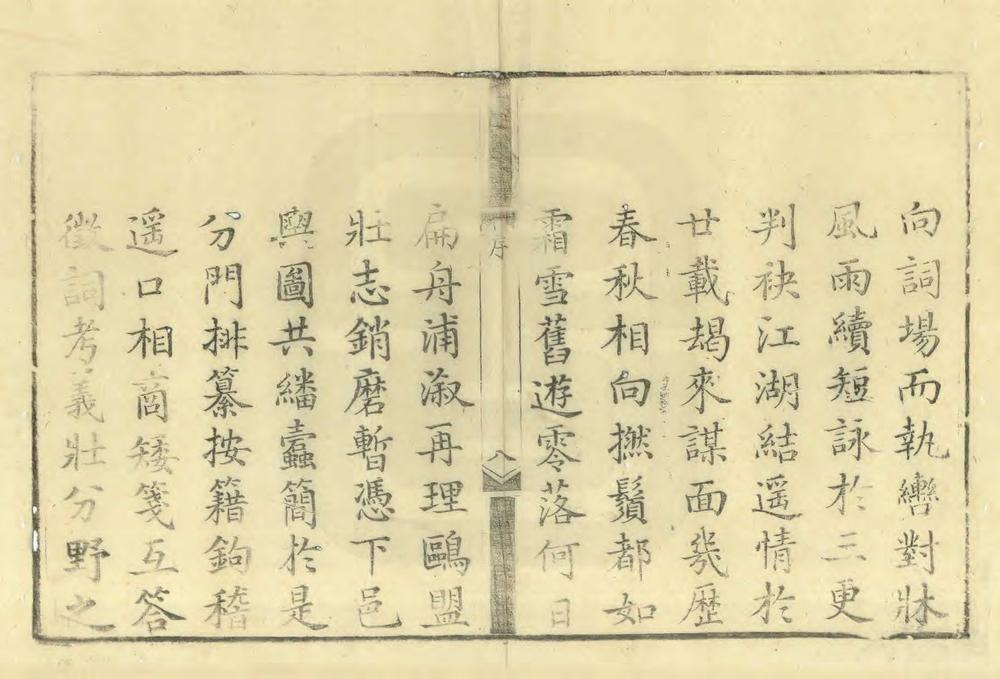 向詞場而執轡對牀
風雨續短詠於三更
判袂江湖結遥情於
廿載朅來謀面幾歷
春秋相向撚鬚都如
霜雪舊遊零落何日
序
八
扁舟浦溆再理鷗盟
壯志銷磨暫憑下邑
輿圖共繙蠹簡於是
分門排纂按籍鉤稽
遥口相商矮箋互答
徵詞考義壯分野之